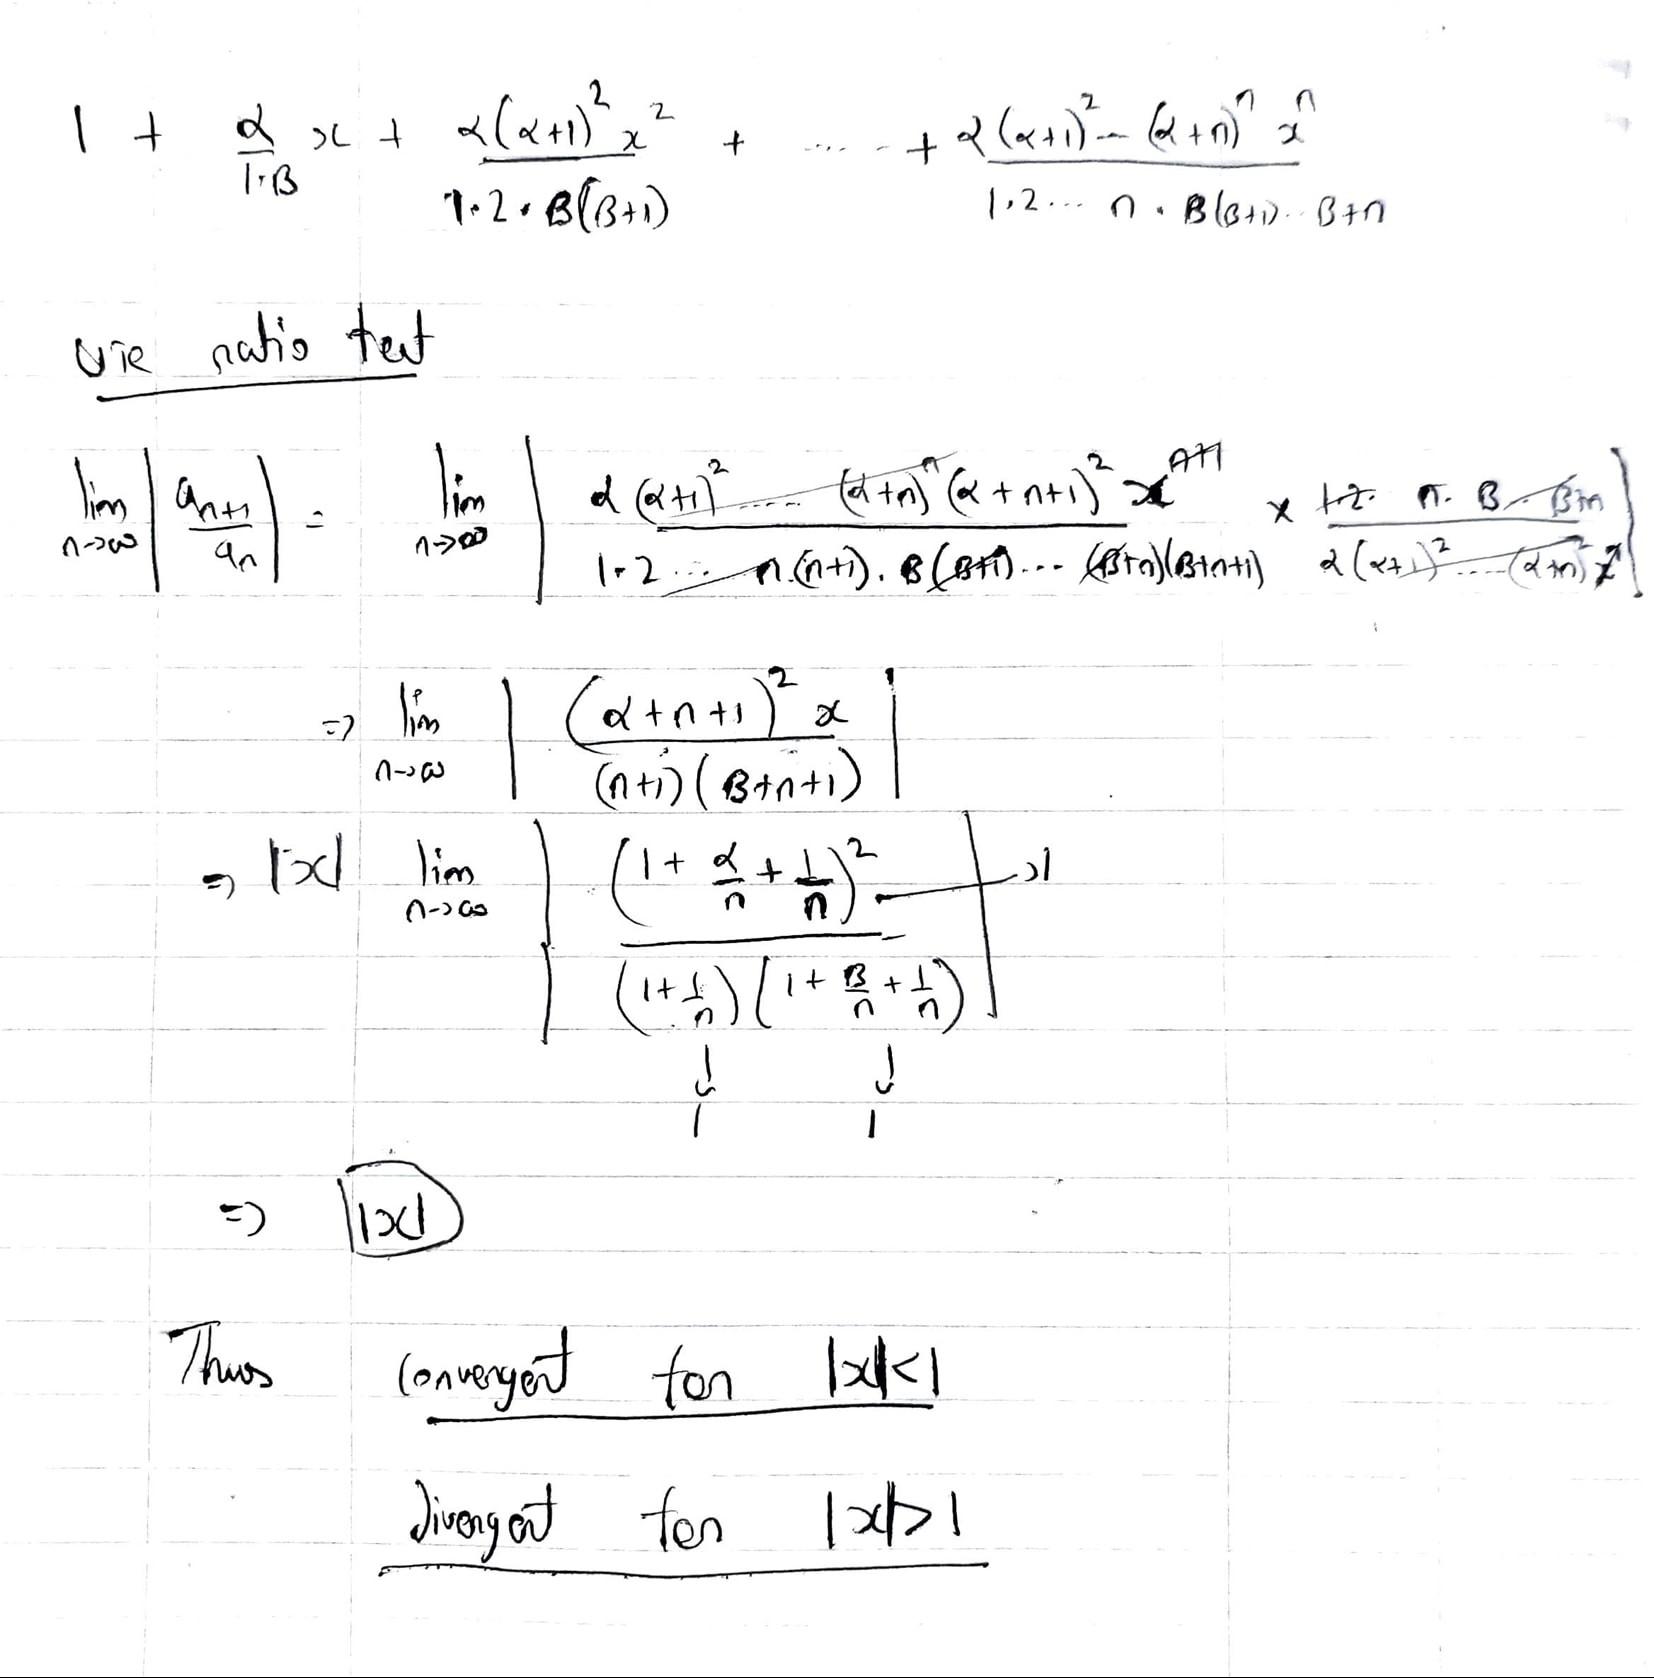 1 + α/1·β x + α(α+1)² x²/1·2·β(β+1) + ..... + α(α+1)² -- (α+n)ⁿ xⁿ/1·2... n · β(β+1).. β+n
use ratio test
lim n→∞ |aₙ₊₁/aₙ| = lim n→∞ |α(α+1)² .... (α+n)ⁿ (α+n+1)² xⁿ⁺¹/1·2... n.(n+1). β(β+1)... (β+n)(β+n+1) × 1·2. n. β -- β+n/α(α+1)² .... (α+n)² xⁿ|
⇒ lim n→∞ |(α+n+1)² x/(n+1)(β+n+1)|
⇒ |x| lim n→∞ |(1 + α/n + 1/n)²/(1 + 1/n)(1 + β/n + 1/n)| → 1
↓ ↓
1 1
⇒ |x|
Thus convergent for |x|<1
divergent for |x|>1